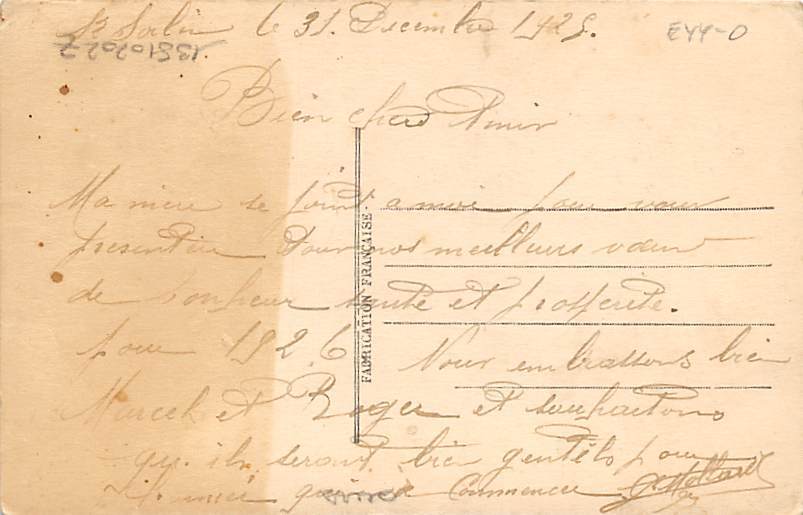 St Sorlin le 31. Decembre 1925.
EYY-0
13510202Z
Bien chers Amis
Ma mère se joint a moi pour vous
presenter tous nos meilleurs vœux
de bonheur santé et prosperité.
pour 1926 Nous embrassons bien
Marcel et Roger et souhaitons
qu'ils seront bien gentils pour
commence
FABRICATION FRANÇAISE